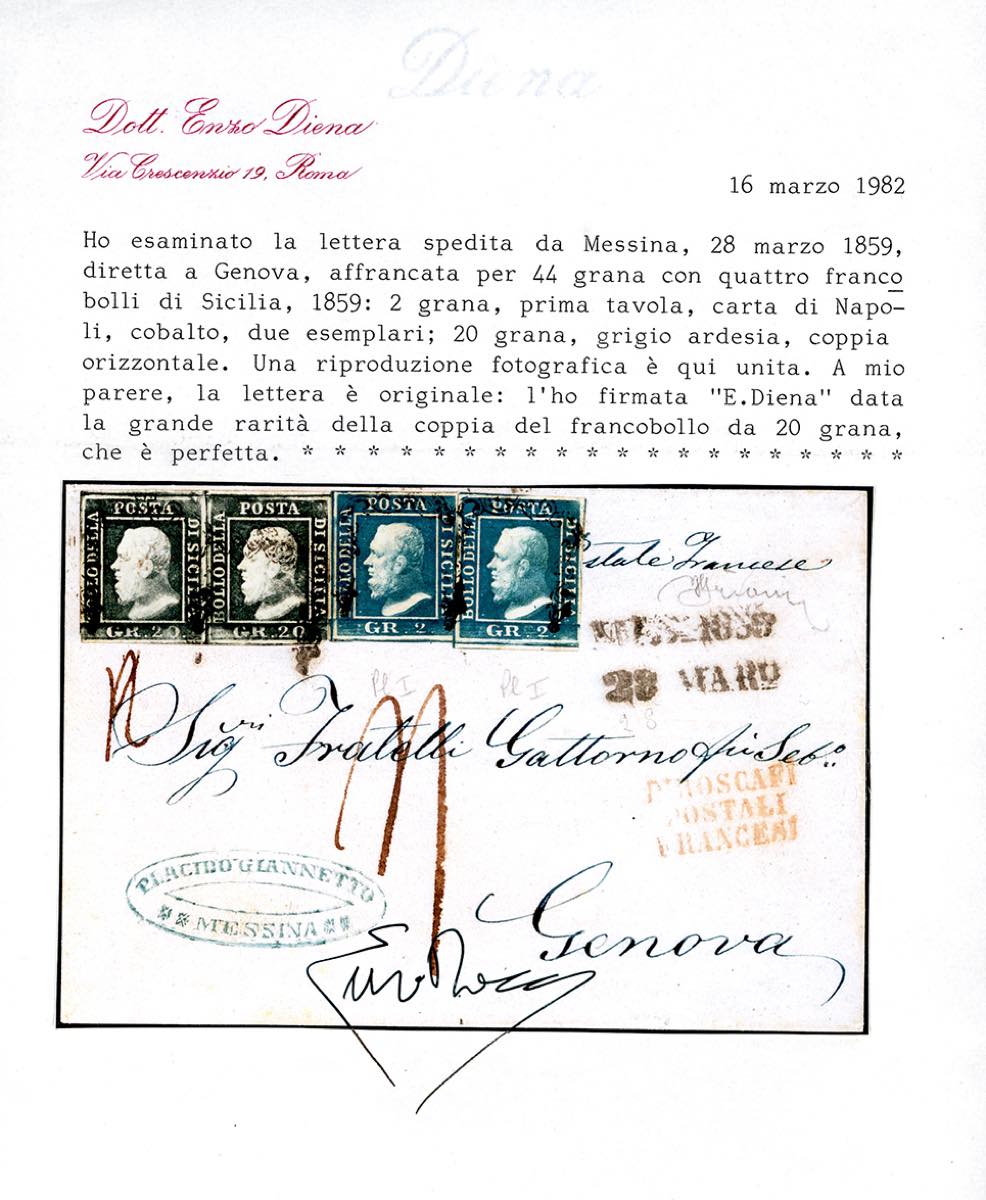 Diena
Dott. Enzo Diena
Via Crescenzio 19, Roma
16 marzo 1982
Ho esaminato la lettera spedita da Messina, 28 marzo 1859,
diretta a Genova, affrancata per 44 grana con quattro franco
bolli di Sicilia, 1859: 2 grana, prima tavola, carta di Napo-
li, cobalto, due esemplari; 20 grana, grigio ardesia, coppia
orizzontale. Una riproduzione fotografica è qui unita. A mio
parere, la lettera è originale: l'ho firmata "E.Diena" data
la grande rarità della coppia del francobollo da 20 grana,
che è perfetta. * * * * * * * * * * * * * * * * * * *
BOLLO DELLA POSTA DI SICILIA GR. 20
BOLLO DELLA POSTA DI SICILIA GR. 20
BOLLO DELLA POSTA DI SICILIA GR. 2
BOLLO DELLA POSTA DI SICILIA GR. 2
Francese
28 MARO
Pl I
Pl I
28
Sigri Fratelli Gattorno fu Sebo.
PIROSCAFI
POSTALI
FRANCESI
PLACIDO GIANNETTO
MESSINA
Genova